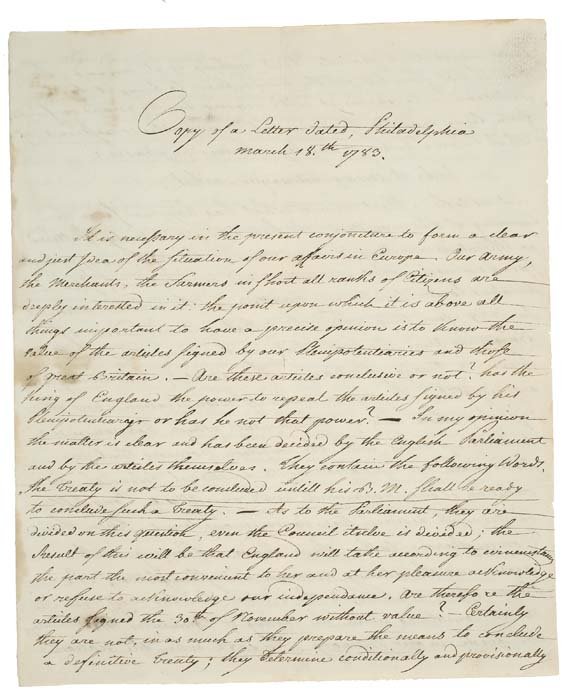 Copy of a Letter dated, Philadelphia
March 18.th 1783.
It is necessary in the present conjuncture to form a clear
and just Idea of the Situation of our affairs in Europe. Our Army,
the Merchants, the Farmers in short all ranks of Citizens are
deeply interested in it: the point upon which it is above all
things important to have a precise opinion is to know the
value of the articles signed by our Plenipotentiaries and those
of great Britain. — Are these articles conclusive or not? has the
King of England the power to repeal the articles signed by his
Plenipotentiary or has he not that power? — In my opinion
the matter is clear and has been decided by the English Parliament
and by the articles themselves. They contain the following Words.
the Treaty is not to be concluded untill his B. M. Shall be ready
to conclude such a Treaty. — As to the Parliament, they are
divided on this question, even the Council itselve is divided; the
Result of this will be that England will take according to circumstances
the part the most convenient to her and at her pleasure acknowledge
or refuse to acknowledge our independance. Are therefore the
articles signed the 30th of November without value? — Certainly
they are not, in as much as they prepare the means to conclude
a definitive Treaty; they determine conditionally and provisionally